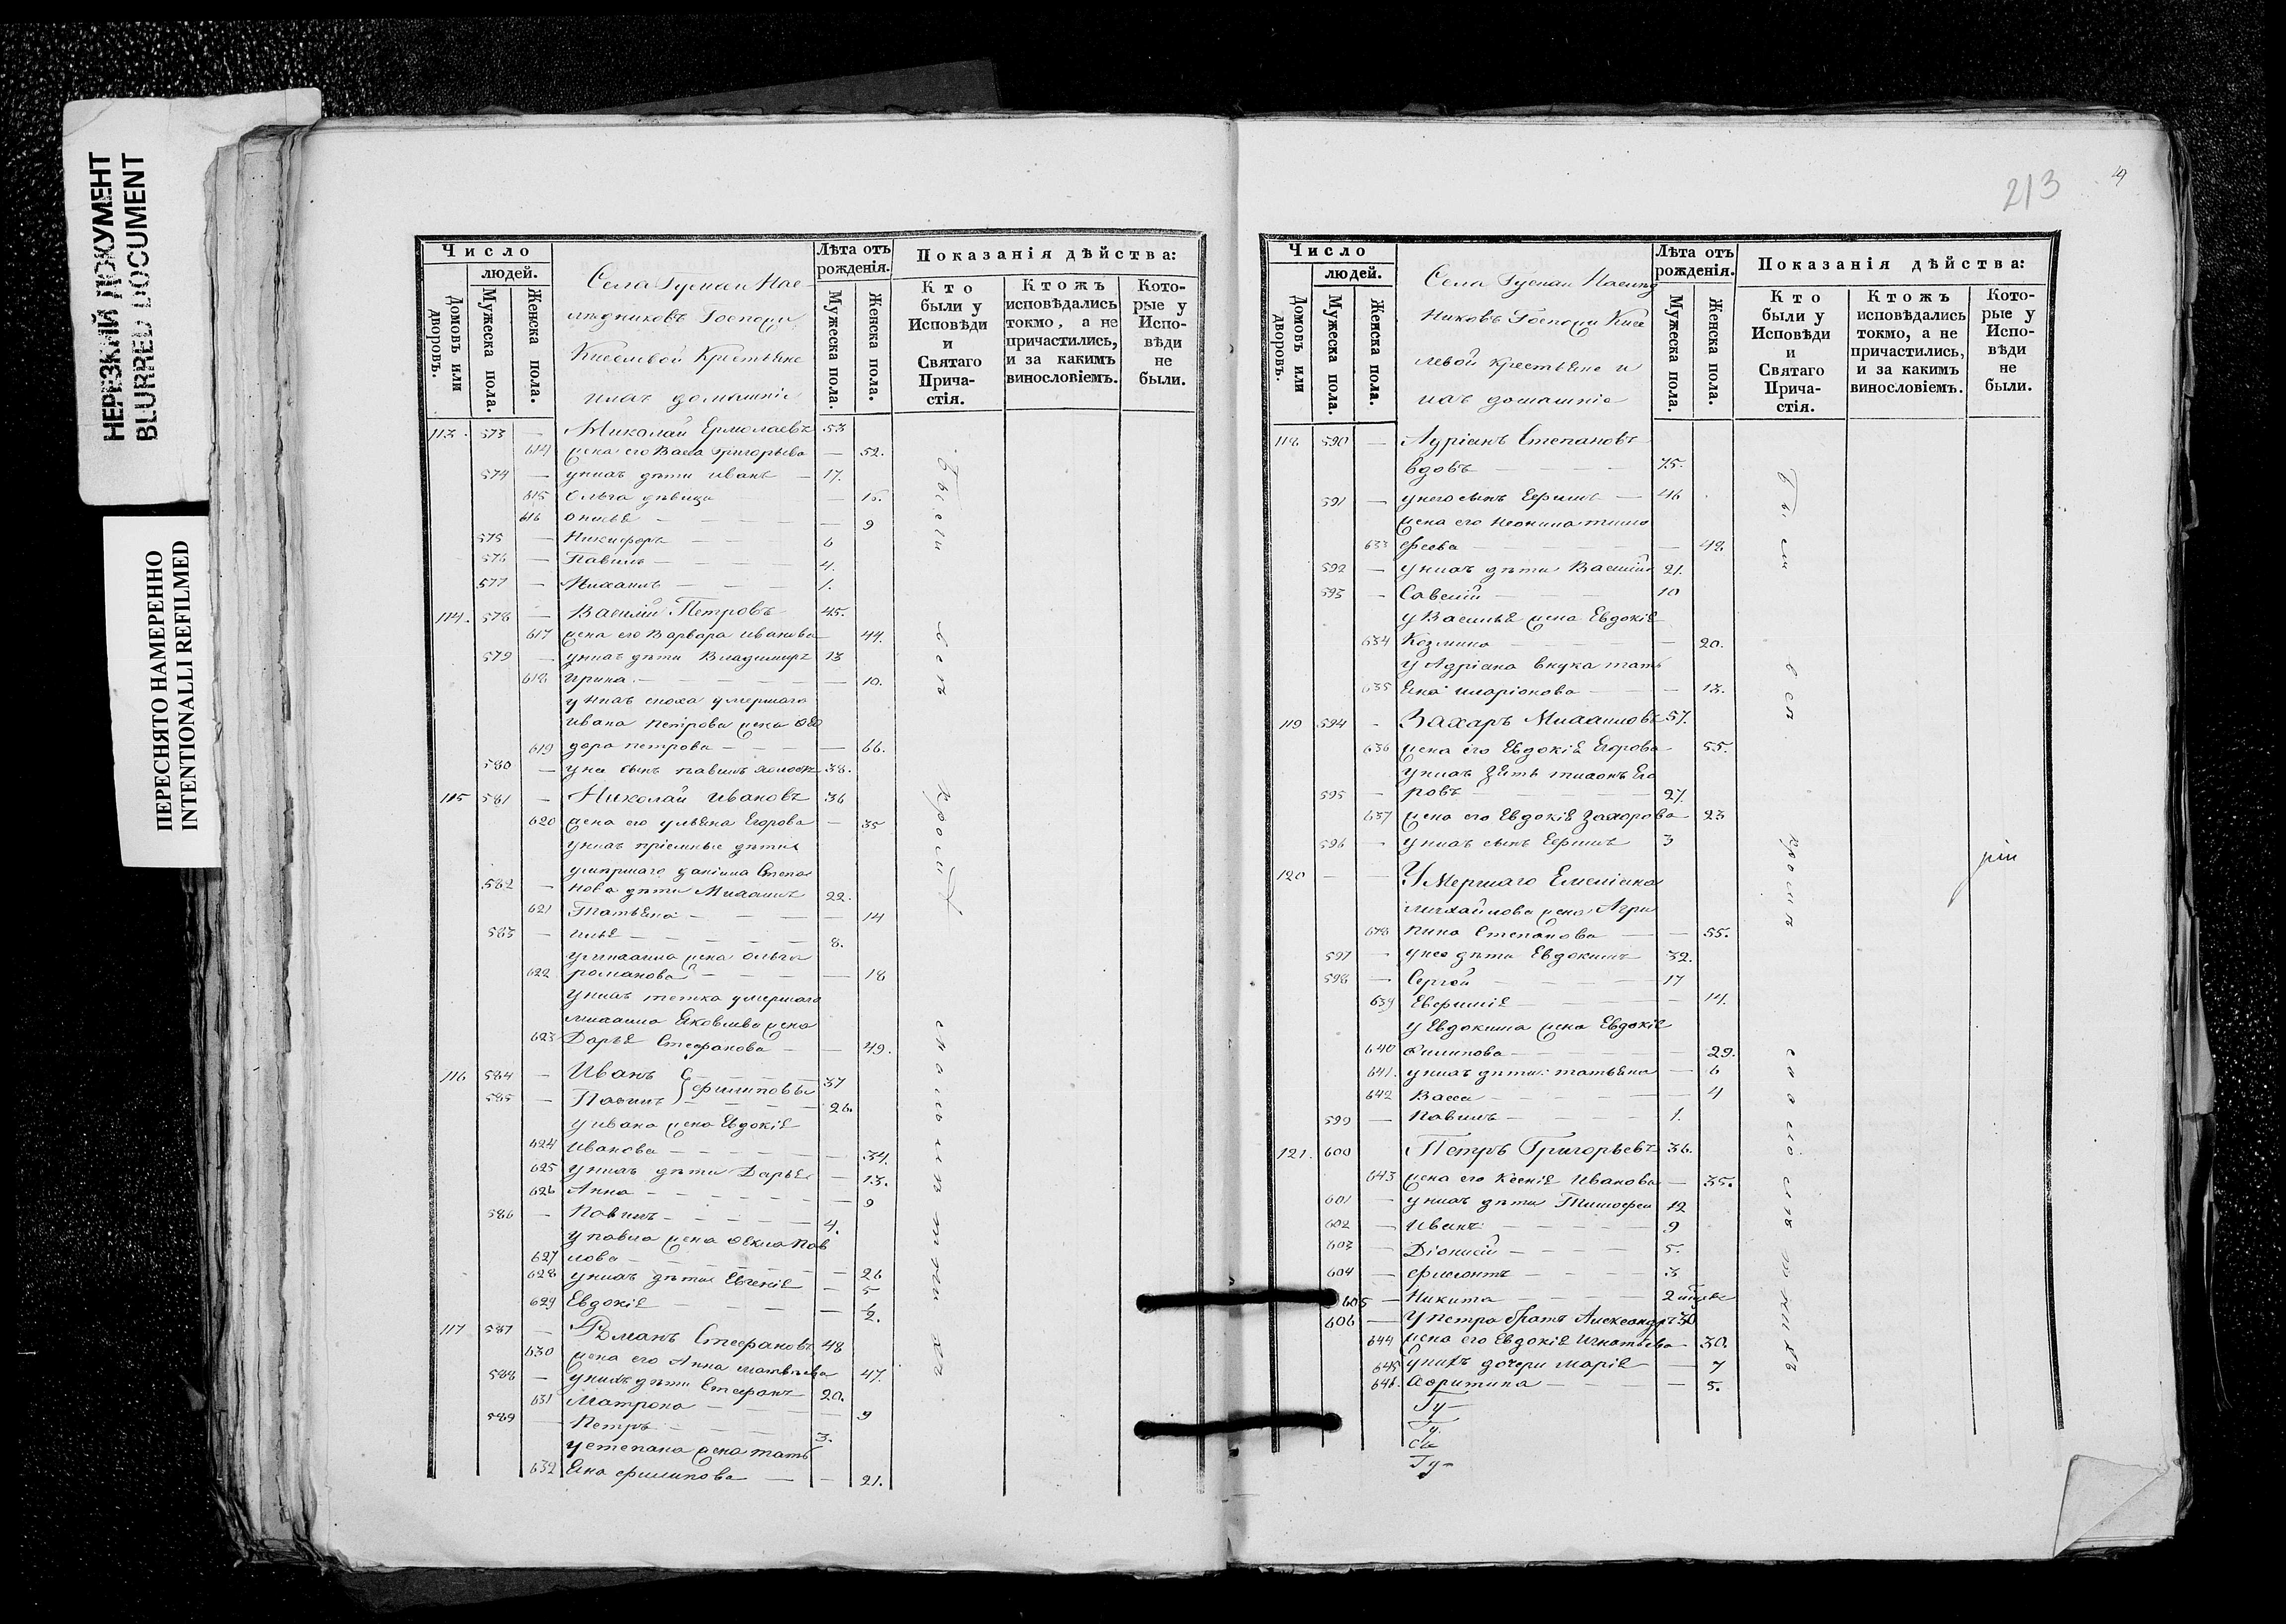 НЕРЕЗКИЙ ДОКУМЕНТ
BLURRED DOCUMENT
ПЕРЕСНЯТО НАМЕРЕННО
INTENTIONALLI REFILMED
Число
людей.
Домовъ или дворовъ.
Мужеска пола.
Женска пола.
Лѣта отъ рожденія.
Мужеска пола.
Женска пола.
Показанія дѣйства:
Кто были у Исповѣди и Святаго Прича-стія.
Ктожъ исповѣдались токмо, а не причастились, и за какимъ винословіемъ.
Кото-рые у Испо-вѣди не были.
113. 573 — Николай Ермолаевъ 53
614 жена его Васса Григорьева — 52.
574 — у нихъ дѣти Иванъ — 17.
615 Ольга дѣвица — 15.
616 — — 9
575 — Никифоръ — 6
576 — Павелъ — 4.
577 — Михаилъ — 1.
114. 578 — Василій Петровъ 45.
617 жена его Варвара Иванова 44.
579 — у нихъ дѣти Владимиръ 13
618 Ирина — 10.
у нихъ сноха умершаго
Ивана Петрова жена Ѳео
619 дора Петрова — 66.
580 — у нее сынъ Павелъ холостъ 38.
115 581 — Николай Ивановъ 36
620 жена его Ульяна Егорова — 35
у нихъ пріемные дѣти
умершаго Даніила Степа
582 — нова дѣти Михаилъ 22.
621 Татьяна — 14
583 — Илья — 8.
у Михаила жена Ольга
622 Романова — 18
у нихъ тетка умершаго
Михаила Яковлева жена
623 Дарья Стефанова — 49.
116 584 — Иванъ
Филиповы 37
585 — Павелъ 26.
у Ивана жена Евдокія
624 Иванова — 34.
625 у нихъ дѣти Дарья — 13.
626 Анна — 9
586 — Павелъ — 4.
у Павла жена Ѳекла Пав
627 лова — 26
628 у нихъ дѣти Евгенія — 5
629 Евдокія — ½.
117 587 — Романъ Стефановъ 48
630 жена его Анна Матвѣева 47.
588 — у нихъ дѣти Стефанъ 20.
631 Матрона — 9
589 — Петръ — 3.
у Степана жена Тать
632 яна Филипова — 21.
Были всѣ кромѣ
213
19
Число
людей.
Домовъ или дворовъ.
Мужеска пола.
Женска пола.
Лѣта отъ рожденія.
Мужеска пола.
Женска пола.
Показанія дѣйства:
Кто были у Исповѣди и Святаго Прича-стія.
Ктожъ исповѣдались токмо, а не причастились, и за какимъ винословіемъ.
Кото-рые у Испо-вѣди не были.
118 590 — Адріанъ Степановъ
вдовъ — 75.
591 — у него сынъ Ефимъ — 46
жена его Неонила Тимо
633 феева — 48
592 — у нихъ дѣти Василій 21.
593 — Савелій 10
у Василья жена Евдокія
634 Козмина — 20.
у Адріана внука Тать
635 яна Иларіонова — 13.
119 594 — Захаръ Михаиловъ 57.
636 жена его Евдокія Егорова 55.
у нихъ зять Тихонъ Его
595 — ровъ — 27.
637 жена его Евдокія Захорова 23
596 — у нихъ сынъ Ефимъ 3
120 — — Умершаго Емеліана
Михайлова жена Агри
638 пина Степанова — 55.
597 — у нее дѣти Евдокимъ 32.
598 — Сергѣй — 17
639 Евфимія — 14.
у Евдокима жена Евдокія
640 Филипова — 29.
641. у нихъ дѣти: Татьяна — 6
642 Васса — 4
599 — Павелъ — 1.
121. 600 Петръ Григорьевъ 36.
643 жена его Ксенія Иванова — 35.
601 — у нихъ дѣти Тимофей 12
602 — Иванъ — 9
603 — Діонисій — 5.
604 — Филимонъ — 3
605 — Никита — 2
606 — У Петра братъ Александръ 30
644 жена его Евдокія Игнатьева 30.
645 у нихъ дочери Марія — 7
646. — 5.
Были всѣ кромѣ